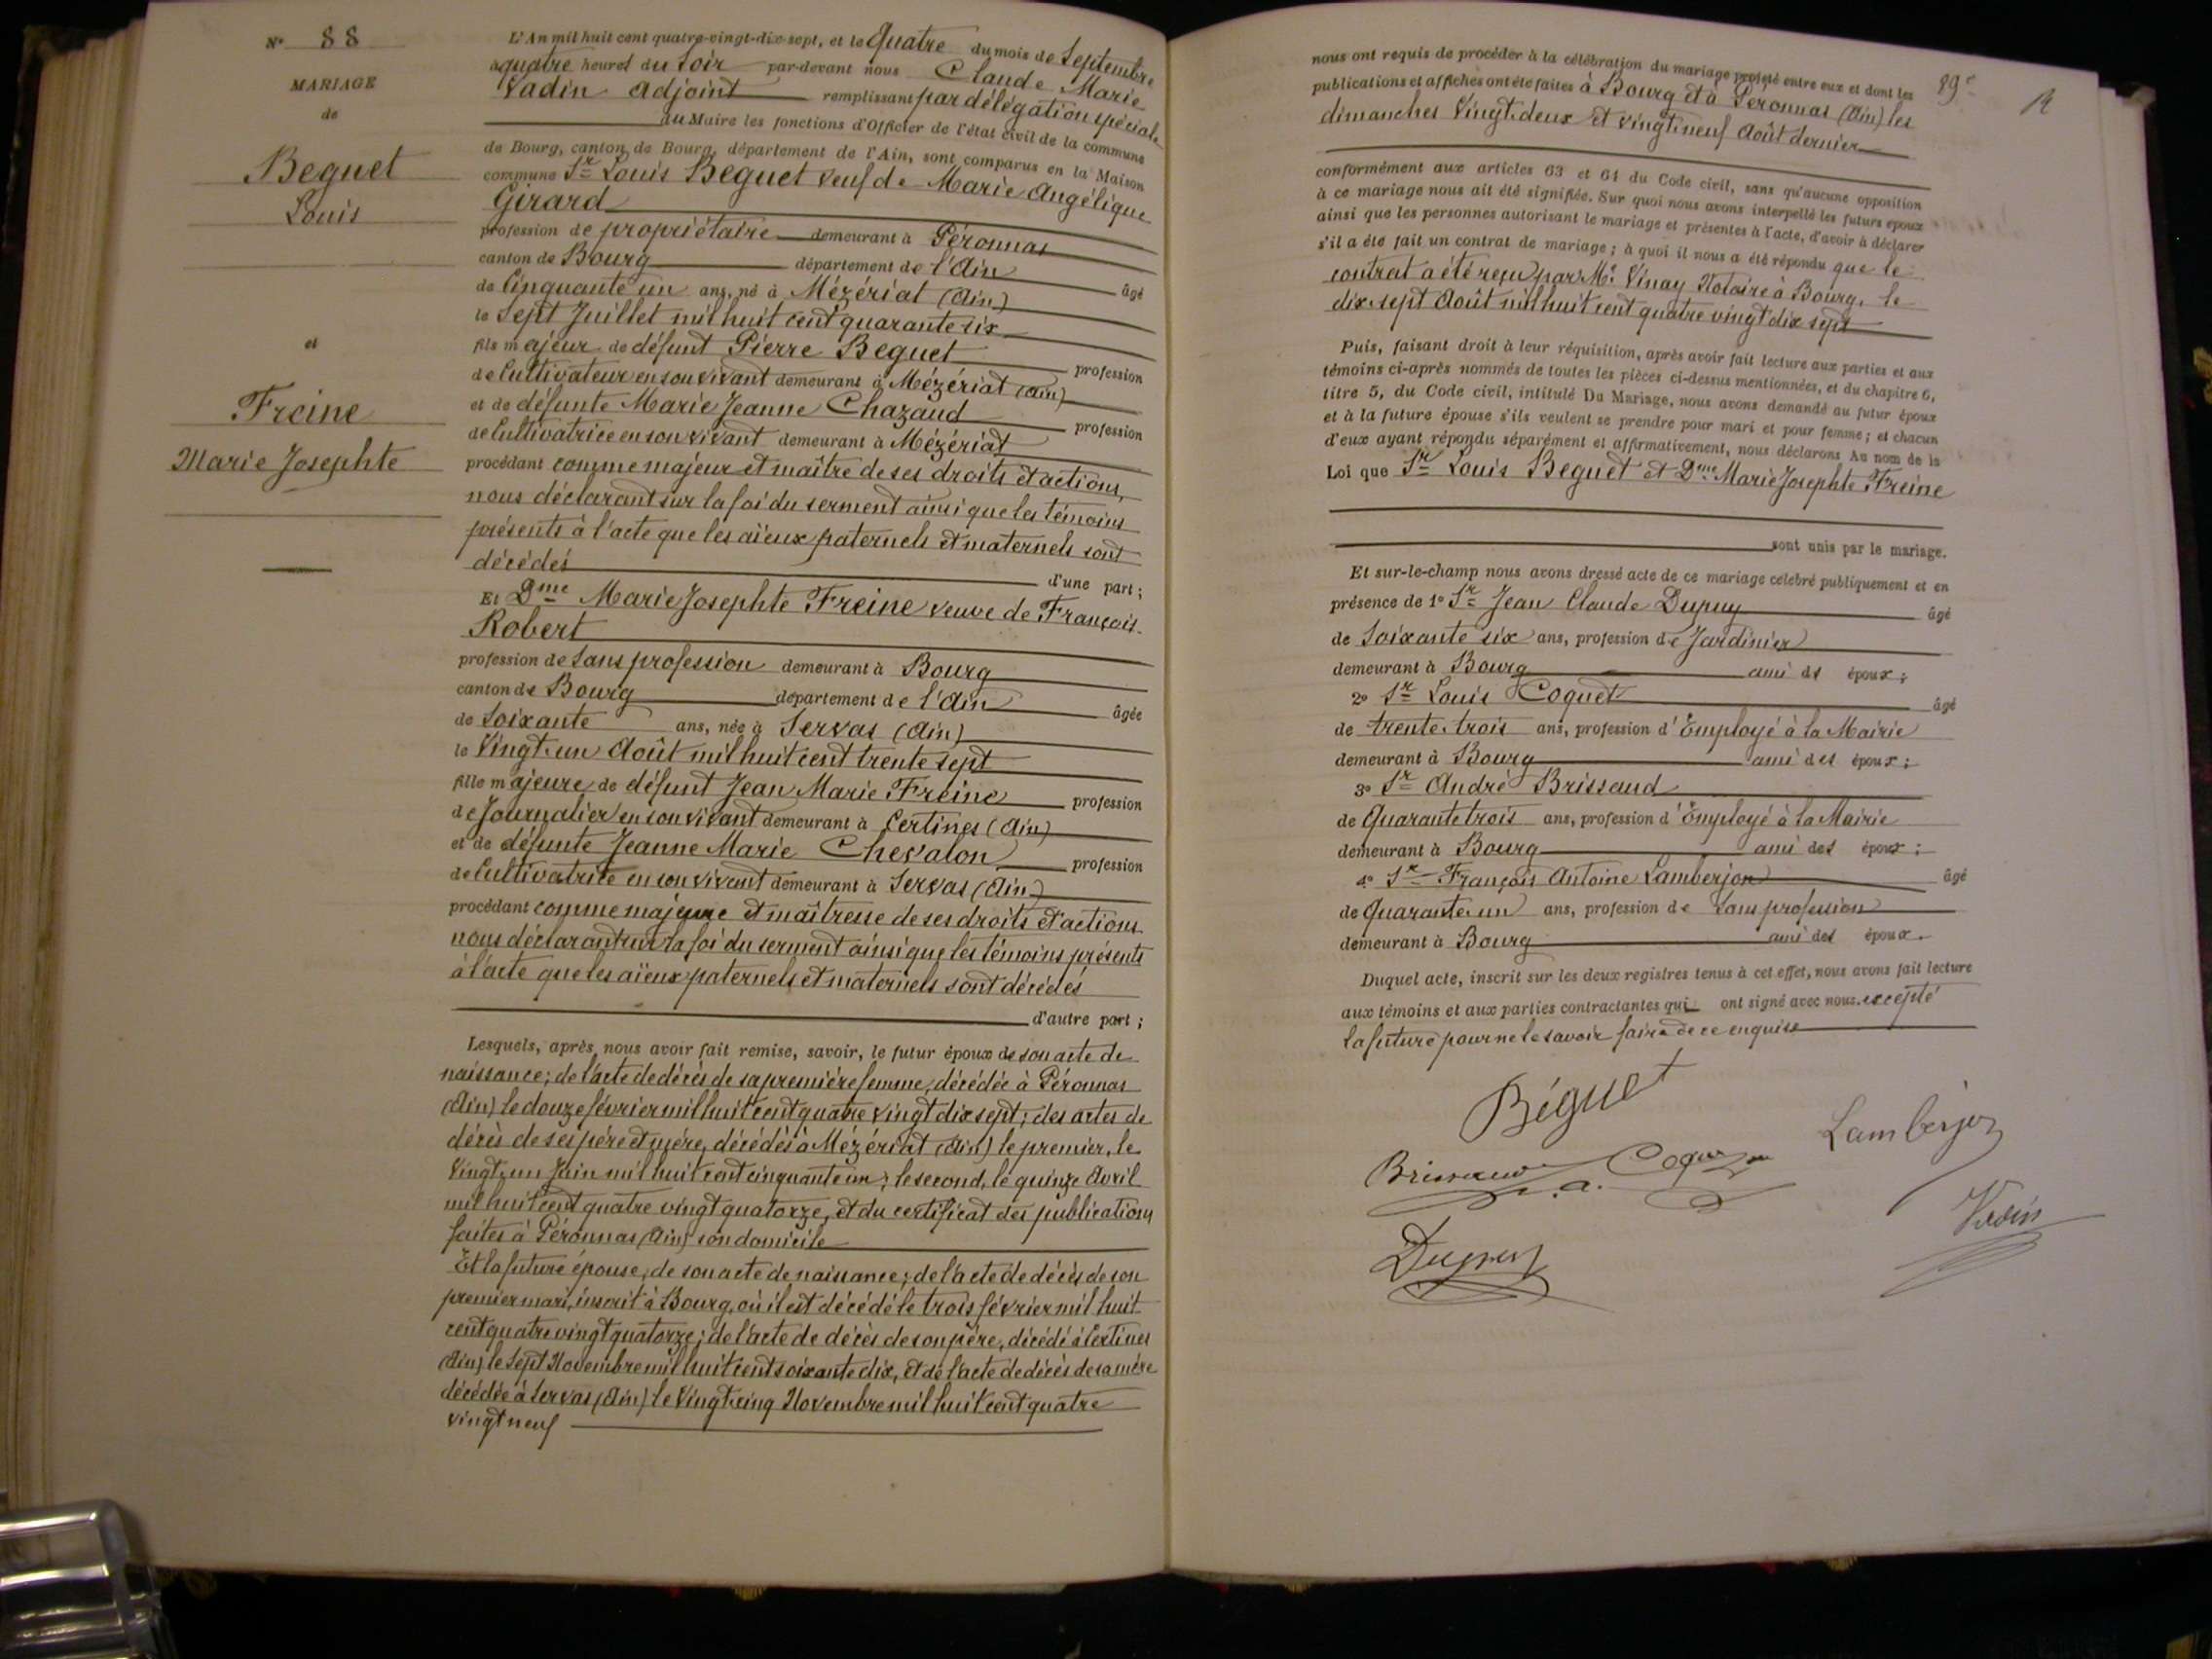 N° 88
MARIAGE
de
Beguet
Louis
et
Freine
Marie Josephte
L'An mil huit cent quatre-vingt-dix-sept, et le Quatre du mois de Septembre
à quatre heures du Soir par-devant nous Claude Marie
Vadin Adjoint remplissant par délégation spéciale
du Maire les fonctions d'Officier de l'état civil de la commune
de Bourg, canton de Bourg, département de l'Ain, sont comparus en la Maison
commune Sr Louis Beguet veuf de Marie Angélique
Girard
profession de propriétaire demeurant à Péronnas
canton de Bourg département de l'Ain âgé
de Cinquante un ans, né à Mézériat (Ain)
le Sept Juillet mil huit cent quarante six
fils majeur de défunt Pierre Beguet profession
de Cultivateur en son vivant demeurant à Mézériat (Ain)
et de défunte Marie Jeanne Chazaud profession
de Cultivatrice en son vivant demeurant à Mézériat
procédant comme majeur et maître de ses droits et actions,
nous déclarant sur la foi du serment ainsi que les témoins
présents à l'acte que les aïeux paternels et maternels sont
décédés d'une part;
Et Dme Marie Josephte Freine veuve de François
Robert
profession de Sans profession demeurant à Bourg
canton de Bourg département de l'Ain âgée
de Soixante ans, née à Servas (Ain)
le Vingt-un Août mil huit cent trente sept
fille majeure de défunt Jean Marie Freine profession
de Journalier en son vivant demeurant à Certines (Ain)
et de défunte Jeanne Marie Chevalon profession
de Cultivatrice en son vivant demeurant à Servas (Ain)
procédant comme majeure et maîtresse de ses droits et actions.
nous déclarant sur la foi du serment ainsi que les témoins présents
à l'acte que les aïeux paternels et maternels sont décédés
d'autre part;
Lesquels, après nous avoir fait remise, savoir, le futur époux de son acte de
naissance; de l'acte de décès de sa première femme, décédée à Péronnas
(Ain) le douze février mil huit cent quatre vingt dix sept; des actes de
décès de ses père et mère, décédés à Mézériat (Ain) le premier, le
Vingt-un Juin mil huit cent cinquante un; le second, le quinze Avril
mil huit cent quatre vingt quatorze, et du certificat des publications
faites à Péronnas (Ain) son domicile
Et la future épouse, de son acte de naissance; de l'acte de décès de son
premier mari, inscrit à Bourg, où il est décédé le trois février mil huit
cent quatre vingt quatorze; de l'acte de décès de son père, décédé à Certines
(Ain) le Sept Novembre mil huit cent soixante dix, et de l'acte de décès de sa mère
décédée à Servas (Ain) le Vingt-cinq Novembre mil huit cent quatre
vingt neuf
89e
R
nous ont requis de procéder à la célébration du mariage projeté entre eux et dont les
publications et affiches ont été faites à Bourg et à Péronnas (Ain) les
dimanches Vingt-deux et vingt-neuf Août dernier
conformément aux articles 63 et 64 du Code civil, sans qu'aucune opposition
à ce mariage nous ait été signifiée. Sur quoi nous avons interpellé les futurs époux
ainsi que les personnes autorisant le mariage et présentes à l'acte, d'avoir à déclarer
s'il a été fait un contrat de mariage; à quoi il nous a été répondu que le
contrat a été reçu par Me Vinay Notaire à Bourg, le
dix sept Août mil huit cent quatre vingt dix sept
Puis, faisant droit à leur réquisition, après avoir fait lecture aux parties et aux
témoins ci-après nommés de toutes les pièces ci-dessus mentionnées, et du chapitre 6,
titre 5, du Code civil, intitulé Du Mariage, nous avons demandé au futur époux
et à la future épouse s'ils veulent se prendre pour mari et pour femme; et chacun
d'eux ayant répondu séparément et affirmativement, nous déclarons Au nom de la
Loi que Sr Louis Beguet et Dme Marie Josephte Freine
sont unis par le mariage.
Et sur-le-champ nous avons dressé acte de ce mariage célébré publiquement et en
présence de 1° Sr Jean Claude Dupuy âgé
de Soixante six ans, profession de Jardinier
demeurant à Bourg ami ds époux;
2° Sr Louis Coquet âgé
de trente-trois ans, profession d'Employé à la Mairie
demeurant à Bourg ami des époux;
3° Sr André Brissaud
de Quarante trois ans, profession d'Employé à la Mairie
demeurant à Bourg ami des époux;
4° Sr François Antoine Lamberjon âgé
de Quarante-un ans, profession de Sans profession
demeurant à Bourg ami des époux.
Duquel acte, inscrit sur les deux registres tenus à cet effet, nous avons fait lecture
aux témoins et aux parties contractantes qui ont signé avec nous. excepté
la future pour ne le savoir faire de ce enquise
Béguet
Lamberjon
Brissaud a. Coquet
Vadin
Dupuy